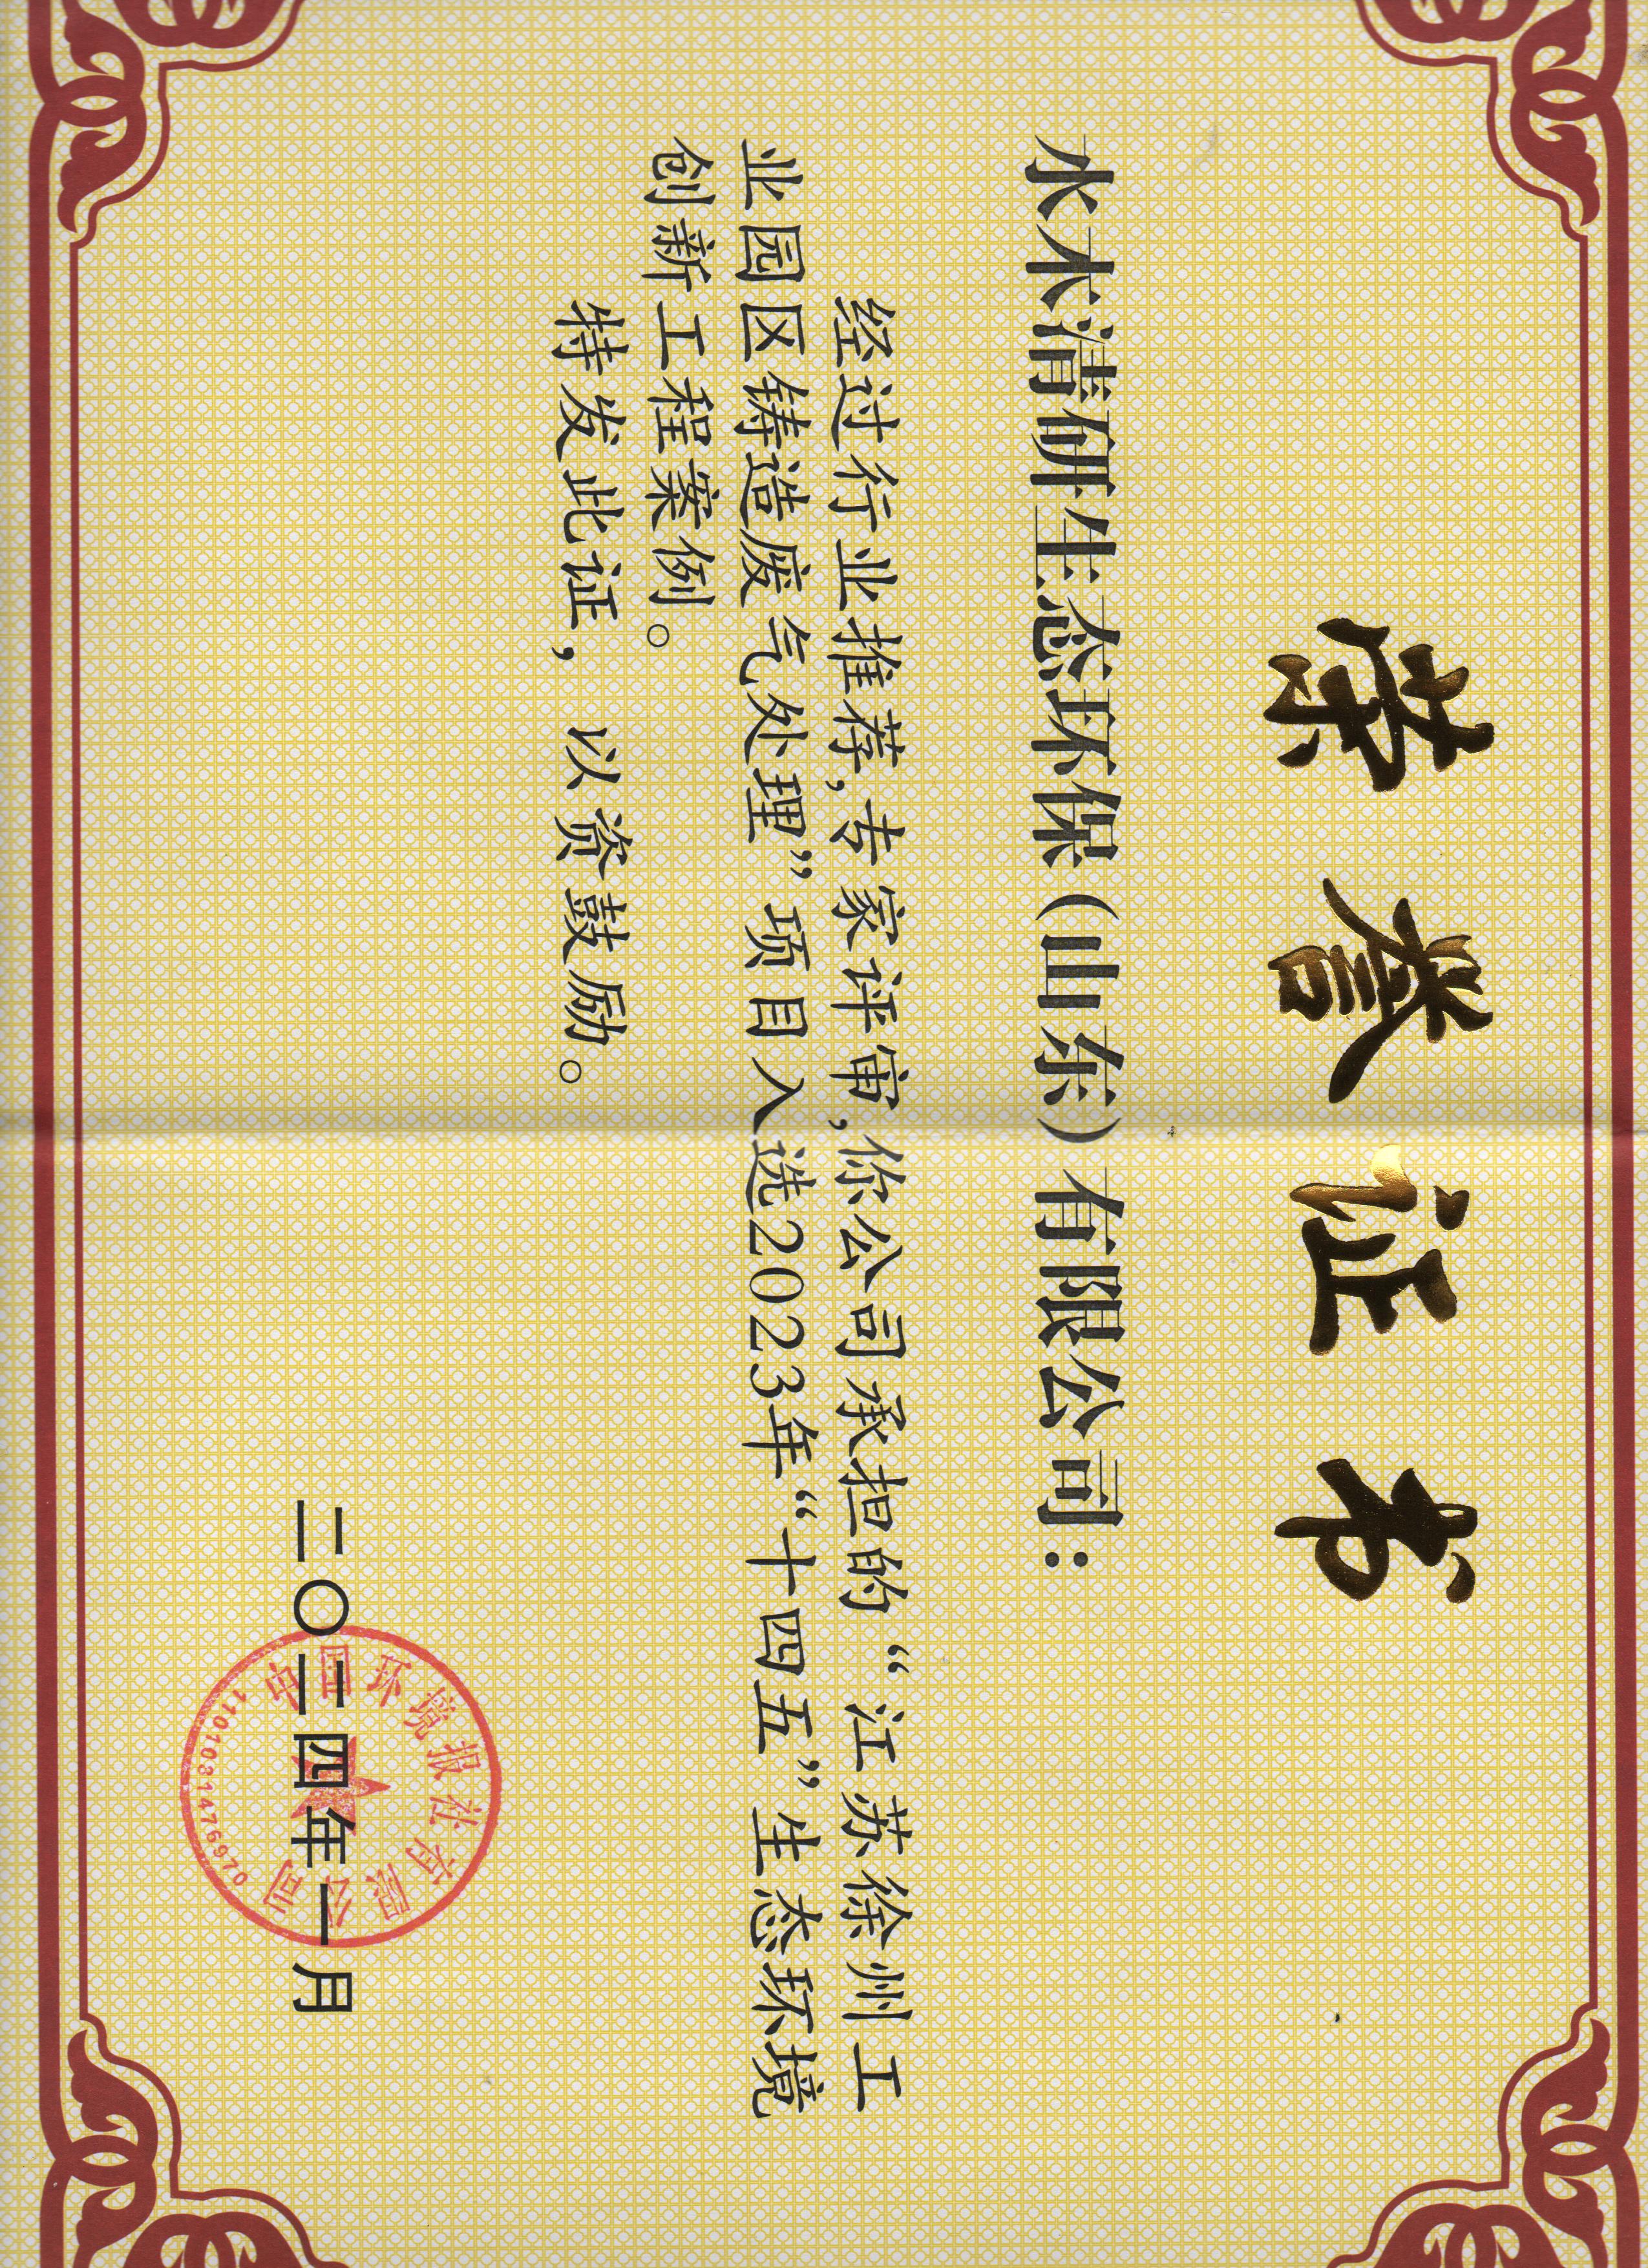 荣誉证书
水木清研生态环保(山东)有限公司：
经过行业推荐,专家评审,你公司承担的“江苏徐州工
业园区铸造废气处理”项目入选2023年“十四五”生态环境
创新工程案例。
特发此证，以资鼓励。
中国环境报社有限公司
二〇二四年一月